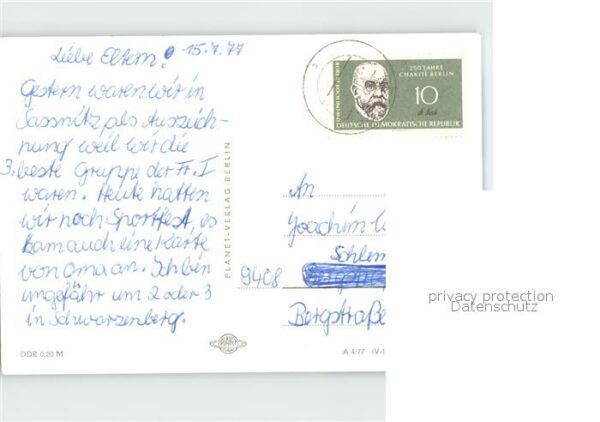 Liebe Eltern! 15.7.77
Gestern waren wir in
Sassnitz als Auszeich-
nung weil wir die
3. beste Gruppe der Fr. I
waren. Heute hatten
wir noch Sportfest, es
kam auch eine Karte
von Oma an. Ich bin
ungefähr um 2 oder 3
in Schwarzenberg.
DDR 0,20 M
PLANET-VERLAG BERLIN
PLANET
A 4/77 (V-1
250 JAHRE
CHARITÉ BERLIN
10
DEUTSCHE DEMOKRATISCHE REPUBLIK
An
Joachim
Schlem
9408
Bergstraße
privacy protection
Datenschutz